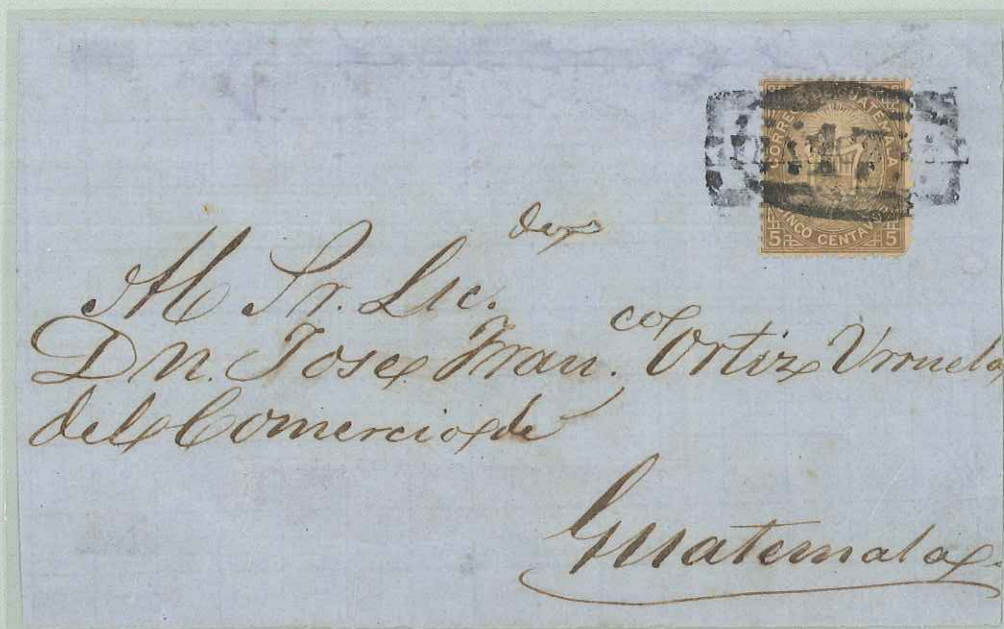 CORREOS GUATEMALA
CINCO CENTAVOS
5 5
Al Sr. Lic.do
Dn. Jose Fran.co Ortiz Urruela
del Comercio de
Guatemala.